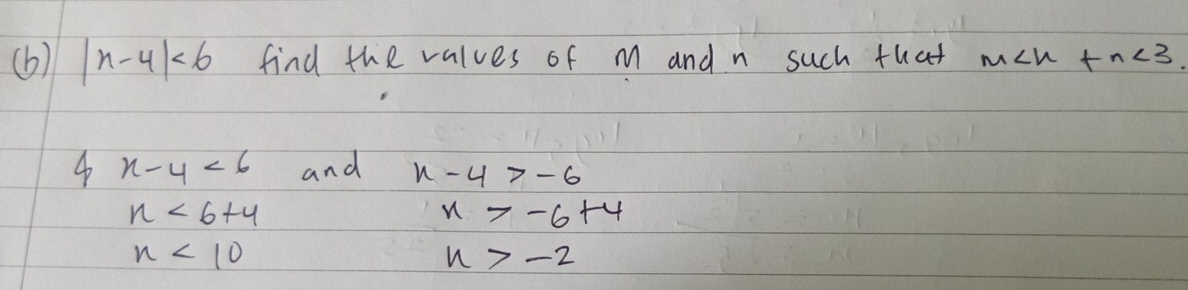 (b) |x-4|<6 find the values of m and n such that m<x +n<3.
x-4<6 and x-4>-6
x<6+4 x>-6+4
x<10 x>-2